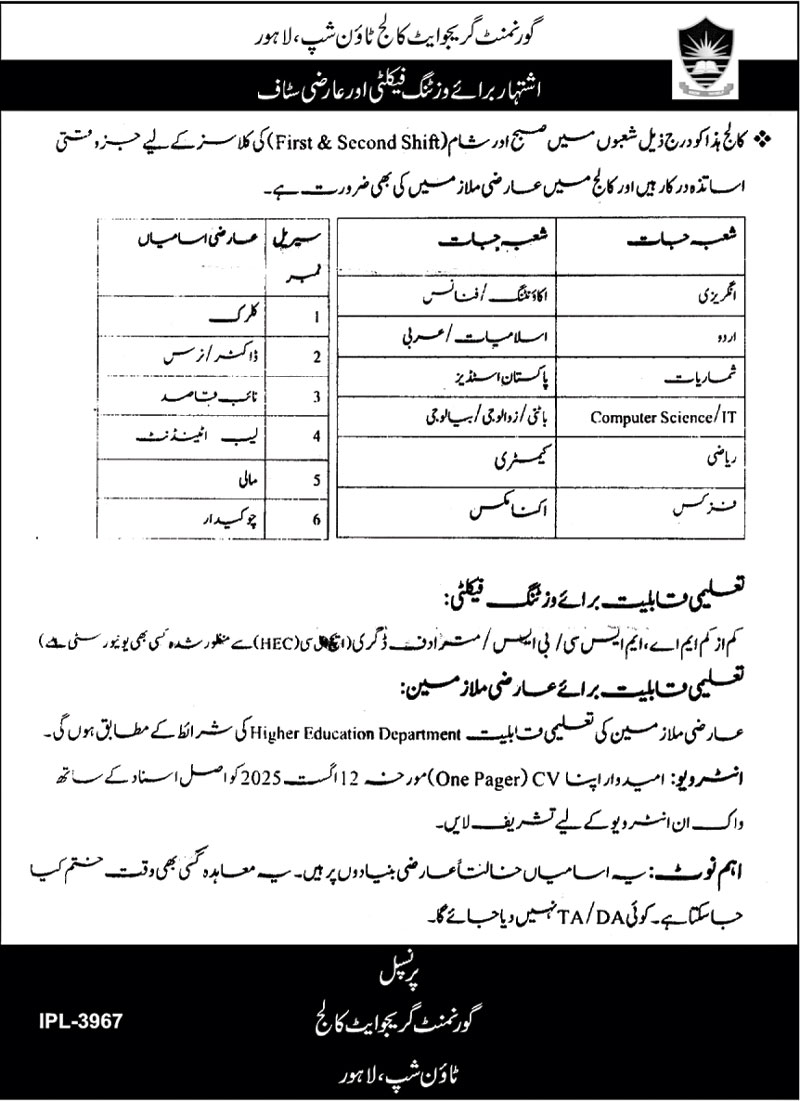 گورنمنٹ گریجوایٹ کالج ٹاؤن شپ، لاہور
اشتہار برائے وزٹنگ فیکلٹی اور عارضی سٹاف
❖ کالج ہذا کو درج ذیل شعبوں میں صبح اور شام (First & Second Shift) کی کلاسز کے لیے جزوقتی
اساتذہ درکار ہیں اور کالج میں عارضی ملازمین کی بھی ضرورت ہے۔
شعبہ جات شعبہ جات
انگریزی اکاؤنٹنگ/فنانس
اردو اسلامیات/عربی
شماریات پاکستان اسٹڈیز
Computer Science/IT باٹنی/زوالوجی/بیالوجی
ریاضی کیمسٹری
فزکس اکنامکس
سیریل نمبر عارضی اسامیاں
1 کلرک
2 ڈاکٹر/نرس
3 نائب قاصد
4 لیب اٹینڈنٹ
5 مالی
6 چوکیدار
تعلیمی قابلیت برائے وزٹنگ فیکلٹی:
کم از کم ایم اے، ایم ایس سی/ بی ایس/ مترادف ڈگری (ایچ ای سی (HEC) سے منظور شدہ کسی بھی یونیورسٹی سے)
تعلیمی قابلیت برائے عارضی ملازمین:
عارضی ملازمین کی تعلیمی قابلیت Higher Education Department کی شرائط کے مطابق ہوں گی۔
انٹرویو: امیدوار اپنا CV (One Pager) مورخہ 12 اگست 2025 کو اصل اسناد کے ساتھ
واک ان انٹرویو کے لیے تشریف لایں۔
اہم نوٹ: یہ اسامیاں خالصتاً عارضی بنیادوں پر ہیں۔ یہ معاہدہ کسی بھی وقت ختم کیا
جا سکتا ہے۔ کوئی TA/DA نہیں دیا جائے گا۔
پرنسپل
گورنمنٹ گریجوایٹ کالج
ٹاؤن شپ، لاہور
IPL-3967